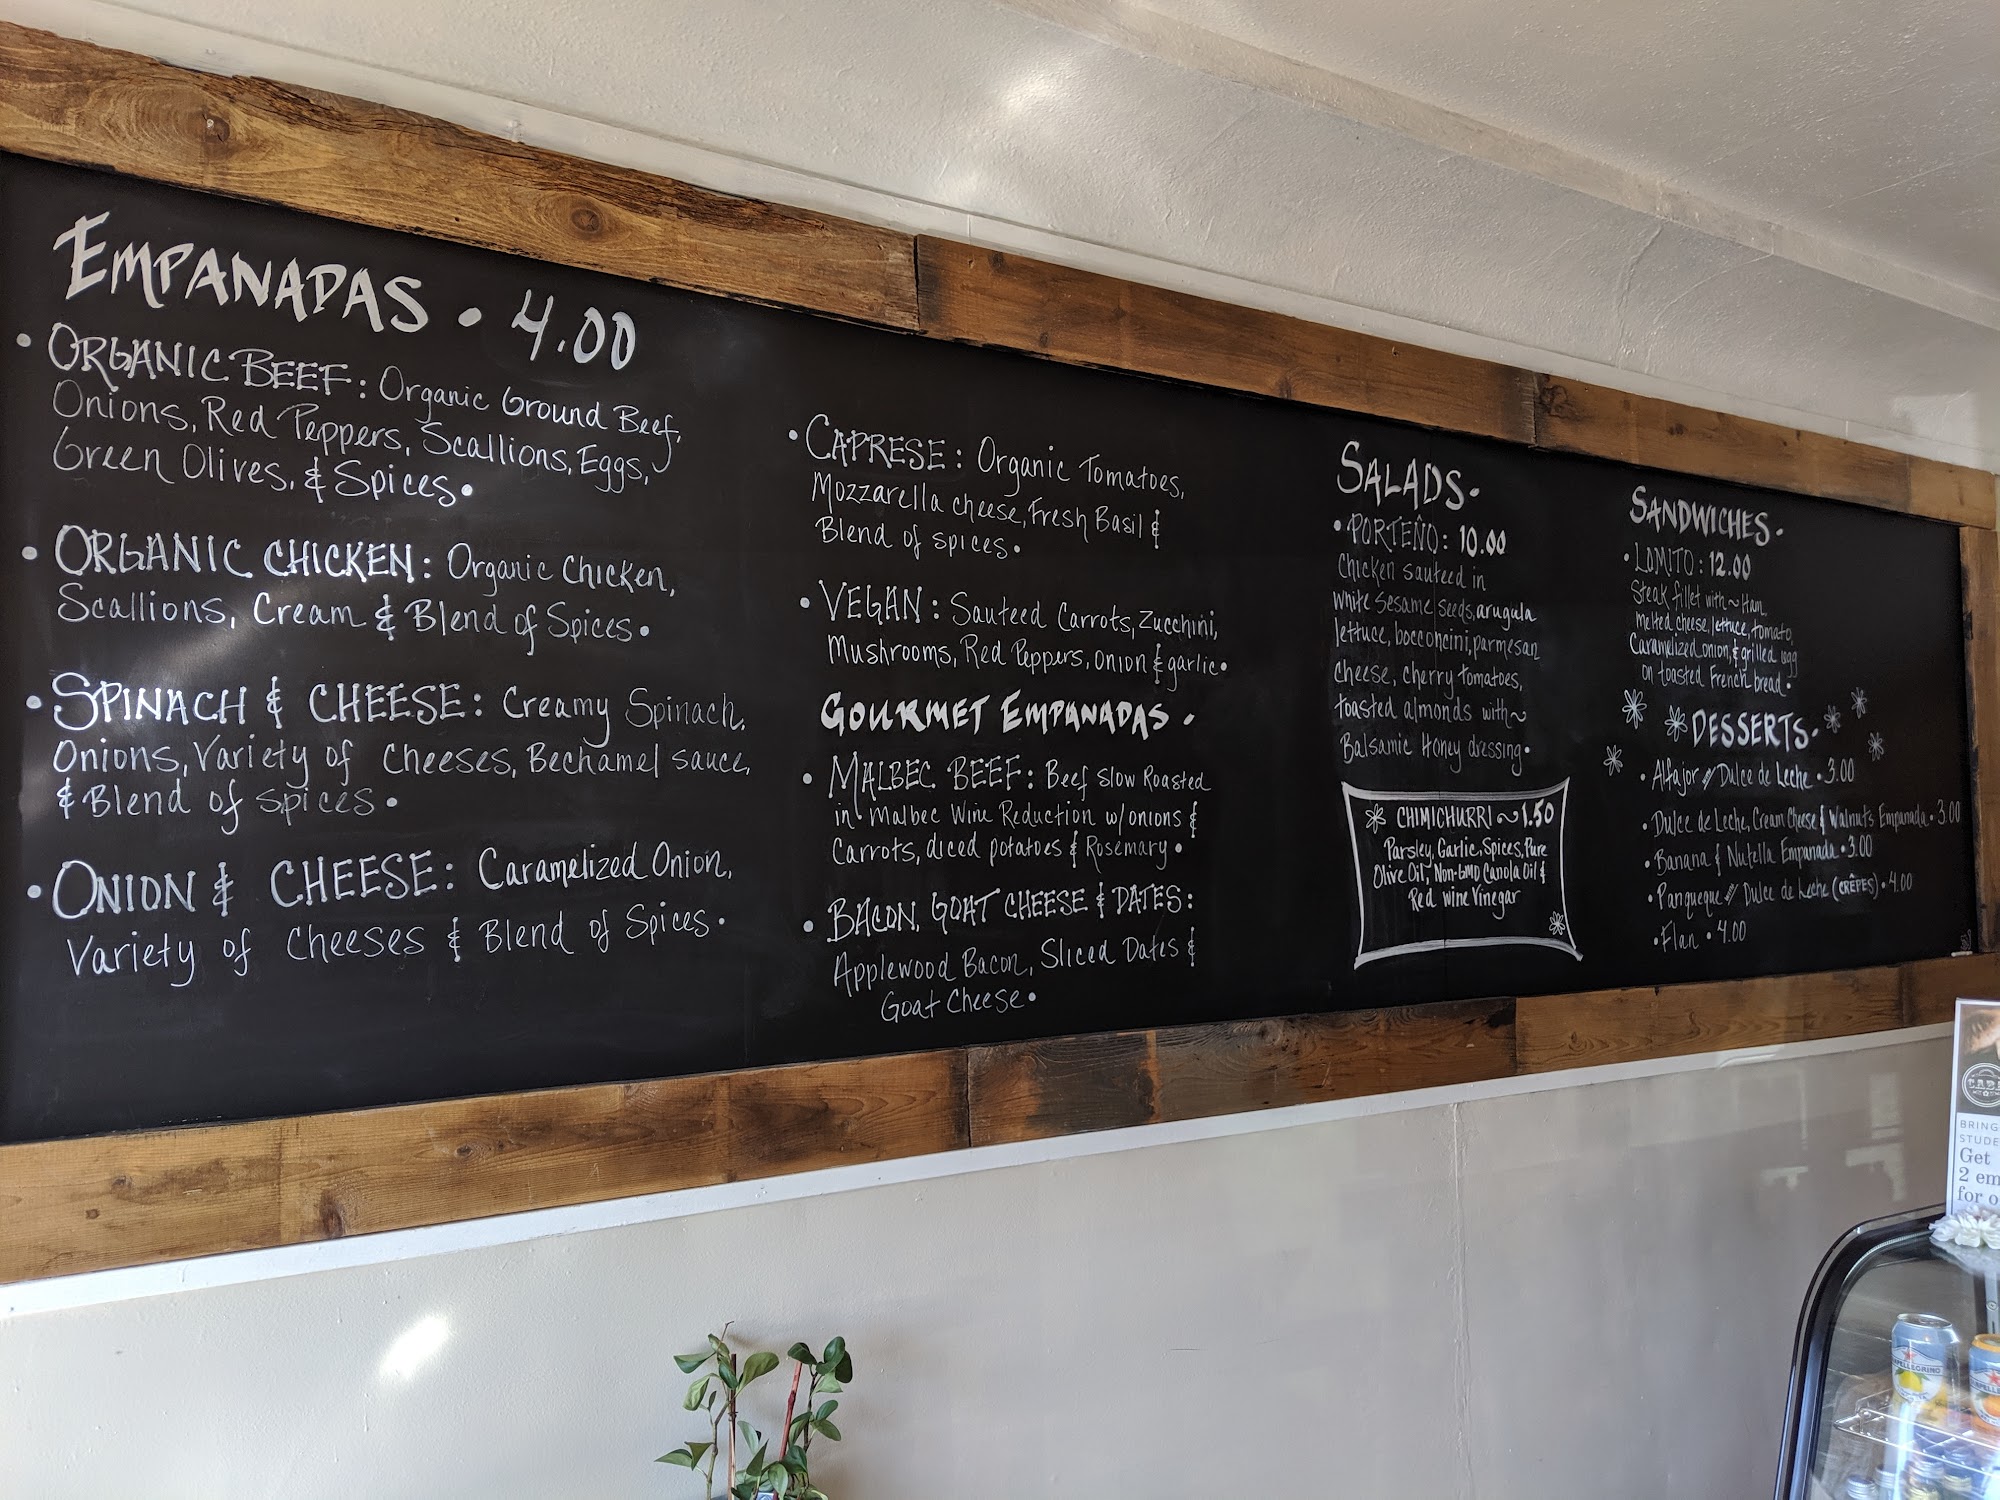 EMPANADAS • 4.00
• ORGANIC BEEF: Organic Ground Beef,
Onions, Red Peppers, Scallions, Eggs,
Green Olives, & Spices •
• ORGANIC CHICKEN: Organic Chicken,
Scallions, Cream & Blend of Spices •
• SPINACH & CHEESE: Creamy Spinach,
Onions, Variety of Cheeses, Bechamel sauce,
& Blend of spices •
• ONION & CHEESE: Caramelized Onion,
Variety of Cheeses & Blend of Spices •
• CAPRESE: Organic Tomatoes,
Mozzarella cheese, Fresh Basil &
Blend of spices •
• VEGAN: Sauteed Carrots, Zucchini,
Mushrooms, Red Peppers, onion & garlic •
GOURMET EMPANADAS •
• MALBEC BEEF: Beef Slow Roasted
in Malbec Wine Reduction w/onions &
Carrots, diced potatoes & Rosemary •
• BACON, GOAT CHEESE & DATES:
Applewood Bacon, Sliced Dates &
Goat Cheese •
SALADS •
• PORTEÑO: 10.00
Chicken sauteed in
white sesame seeds, arugula
lettuce, bocconcini, parmesan
cheese, cherry tomatoes,
toasted almonds with~
Balsamic Honey dressing •
CHIMICHURRI ~ 1.50
Parsley, Garlic, Spices, Pure
Olive Oil, Non-GMO Canola Oil &
Red wine Vinegar
SANDWICHES •
• LOMITO: 12.00
Steak fillet with ~ Ham,
melted cheese, lettuce, tomato,
Caramelized onion, & grilled egg
on toasted French bread •
DESSERTS •
• Alfajor // Dulce de Leche • 3.00
• Dulce de Leche, Cream Cheese & Walnuts Empanada • 3.00
• Banana & Nutella Empanada • 3.00
• Panqueque // Dulce de Leche (CRÊPES) • 4.00
• Flan • 4.00
BRING
STUDE
Get
2 em
for o
PELLEGRINO